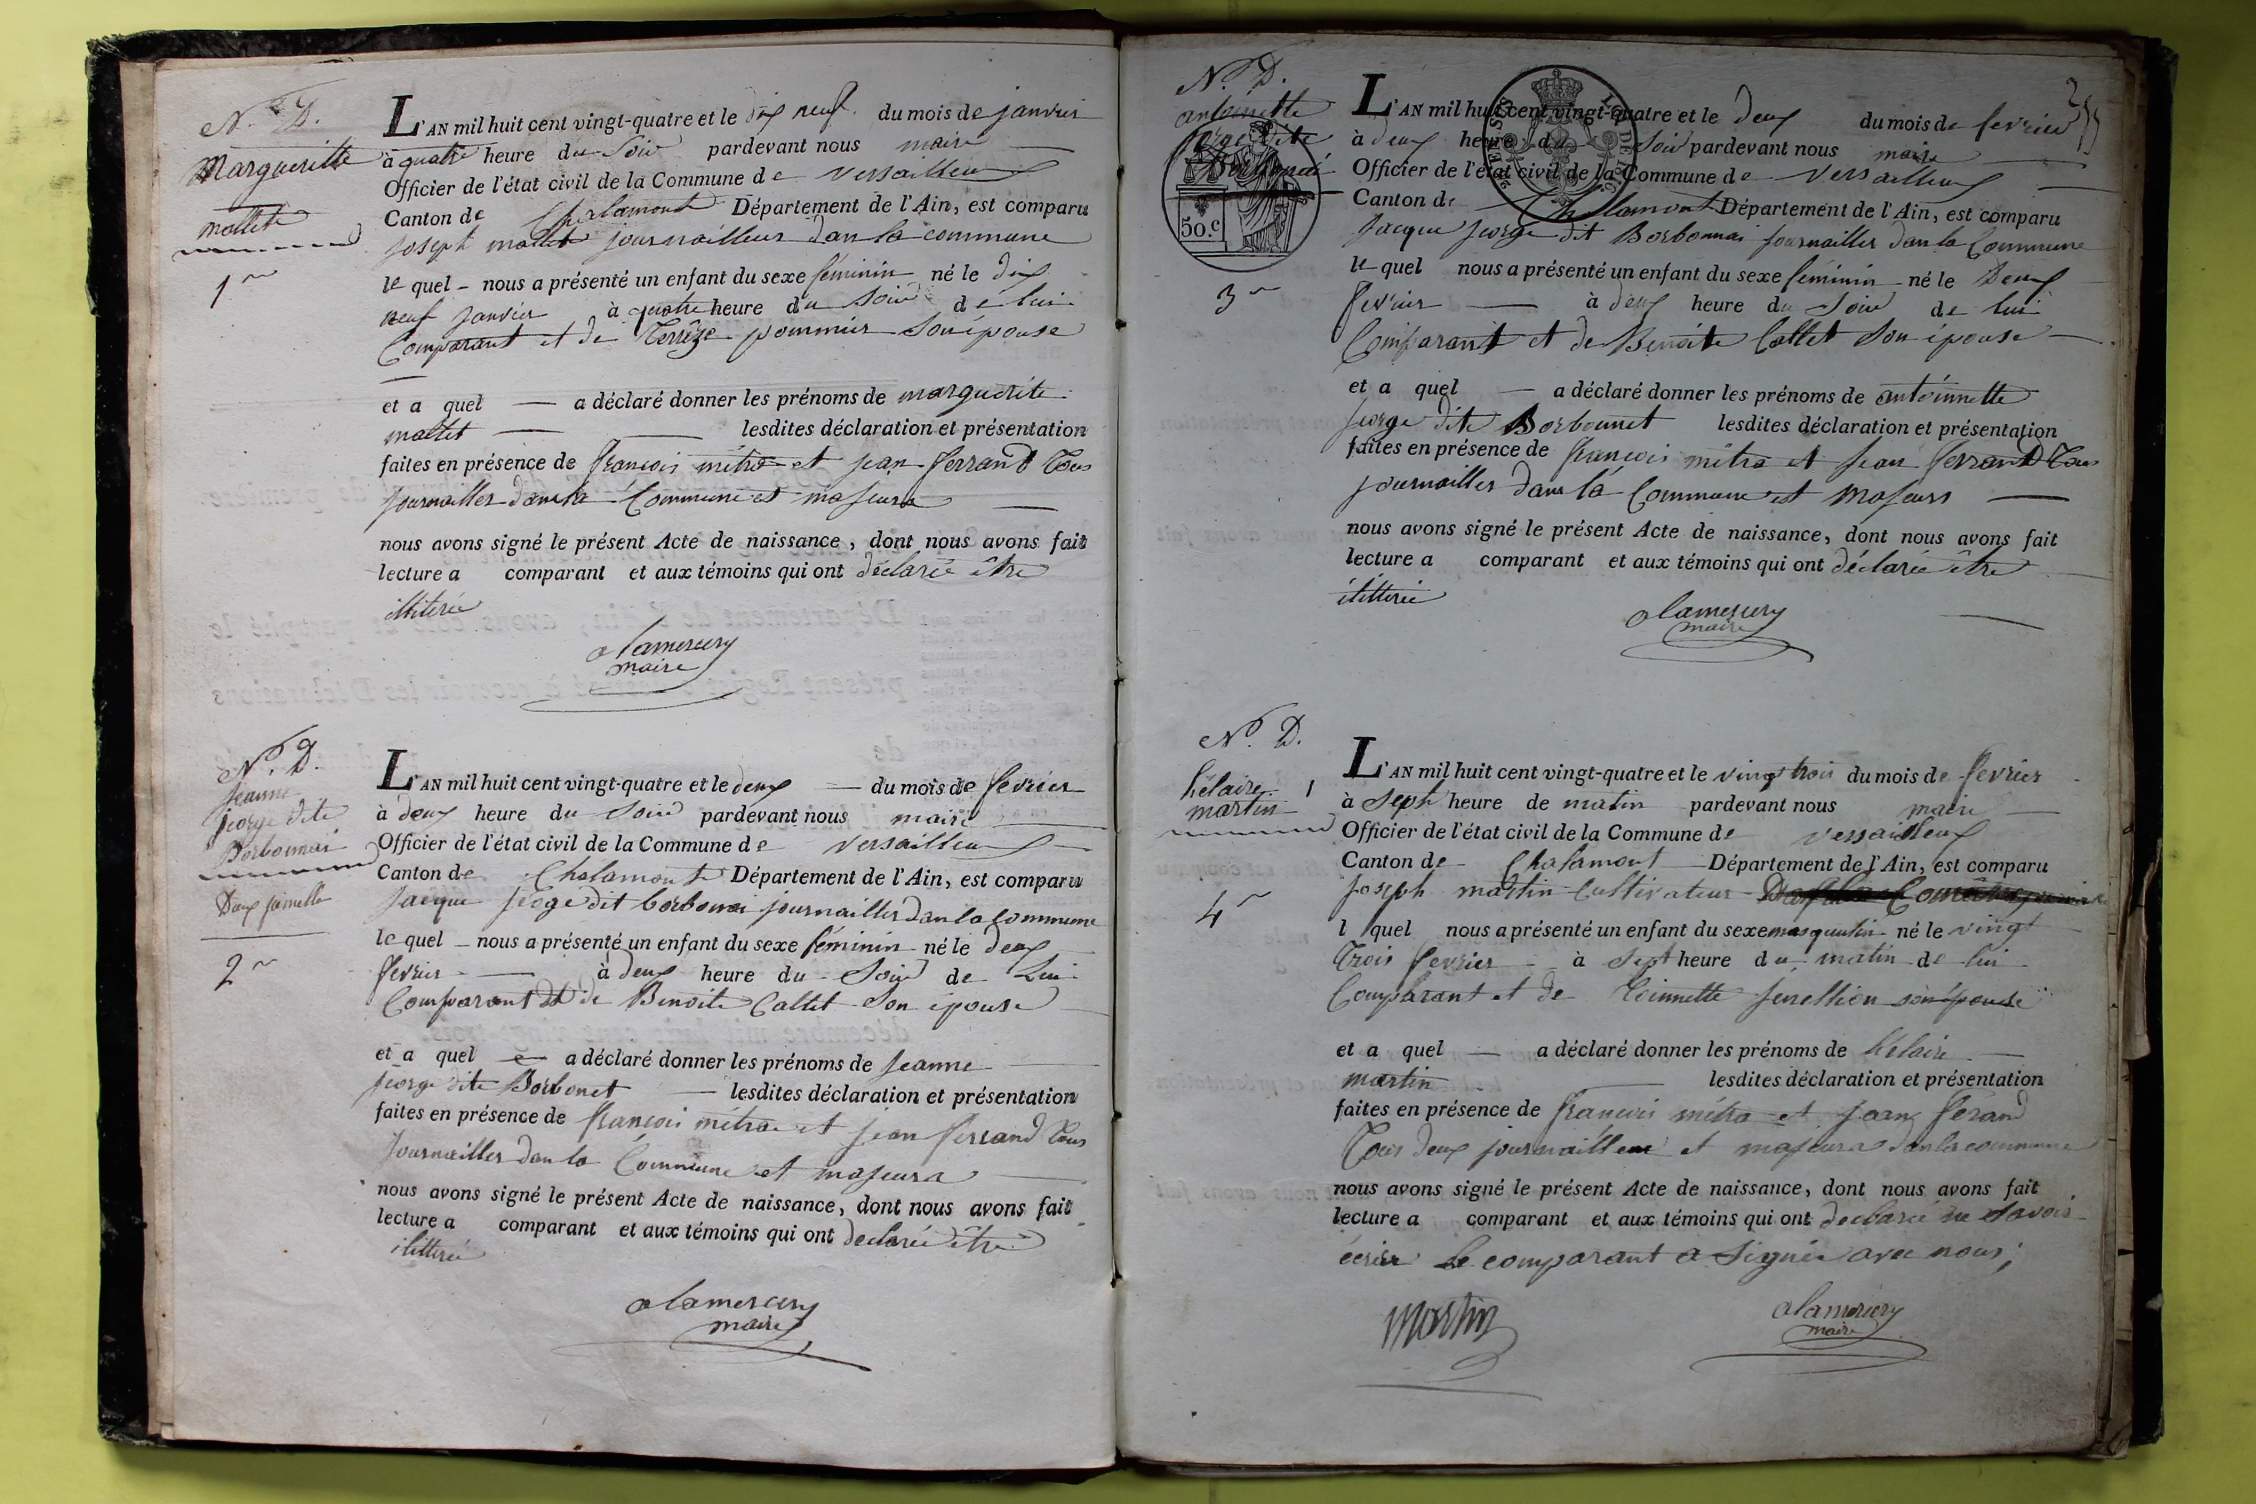 N.º D.
Margueritte
mallet
1re
L'AN mil huit cent vingt-quatre et le dix neuf du mois de janvier
à quatre heure du soir pardevant nous maire
Officier de l'état civil de la Commune de versailleux
Canton de Chalamont Département de l'Ain, est comparu
joseph mallet journailleur dan la commune
le quel nous a présenté un enfant du sexe féminin né le dix
neuf janvier à quatre heure du soir de lui
Comparant et de Terrèze pommier son épouse
et a quel a déclaré donner les prénoms de marguerite
mallet lesdites déclaration et présentation
faites en présence de françois métra et jean ferrand Tous
journailler dans la Commune et majeurs
nous avons signé le présent Acte de naissance, dont nous avons fait
lecture a comparant et aux témoins qui ont déclarée être
illiterée
alamercery
maire
N.º D.
jeanne
jeorge dite
Borbonnai
Deux jumelle
2re
L'AN mil huit cent vingt-quatre et le deux du mois de fevrier
à deux heure du soir pardevant nous maire
Officier de l'état civil de la Commune de versailleux
Canton de Chalamont Département de l'Ain, est comparu
jacque jeoge dit borbonnai journailler dan la commune
le quel nous a présenté un enfant du sexe féminin né le deux
fevrier à deux heure du soir de Lui
Comparant et de Benoite Callet son épouse
et a quel a déclaré donner les prénoms de jeanne
jeorge dite Borbonet lesdites déclaration et présentation
faites en présence de françois métra et jean ferrand Tous
journailler dan la Commune et majeurs
nous avons signé le présent Acte de naissance, dont nous avons fait
lecture a comparant et aux témoins qui ont declarée être
ilitterée
alamercery
maire
N.º D.
antoinette
jeorge dite
Borbonnai
50.c
3re
L'AN mil huit cent vingt-quatre et le deux du mois de fevrier
à deux heure du soir pardevant nous maire
Officier de l'état civil de la Commune de versailleux
Canton de Chalamont Département de l'Ain, est comparu
jacque jeorge dit Borbonnai journailler dan la Commune
le quel nous a présenté un enfant du sexe féminin né le Deux
fevrier à deux heure du soir de lui
Comparant et de Benoite Callet son épouse
et a quel a déclaré donner les prénoms de antoinnette
jeorge dite Borbonnet lesdites déclaration et présentation
faites en présence de françois métra et jean ferrand Tous
journailler dans la Commune et majeurs
nous avons signé le présent Acte de naissance, dont nous avons fait
lecture a comparant et aux témoins qui ont déclarée être
ilitterée
alamercery
maire
N.º D.
hélaire
martin
4re
L'AN mil huit cent vingt-quatre et le vingt trois du mois de fevrier
à sept heure de matin pardevant nous maire
Officier de l'état civil de la Commune de versailleux
Canton de Chalamont Département de l'Ain, est comparu
joseph martin Cultivateur
l quel nous a présenté un enfant du sexe masqulin né le vingt
Trois fevrier à sept heure du matin de lui
Comparant et de Toinnette son épouse
et a quel a déclaré donner les prénoms de hélaire
martin lesdites déclaration et présentation
faites en présence de françois métra et jean férand
Tous deux journailleur et majeurs dan la commune
nous avons signé le présent Acte de naissance, dont nous avons fait
lecture a comparant et aux témoins qui ont declarée ne savoir
écrire le comparant a signée avec nous;
martin
alamercery
maire